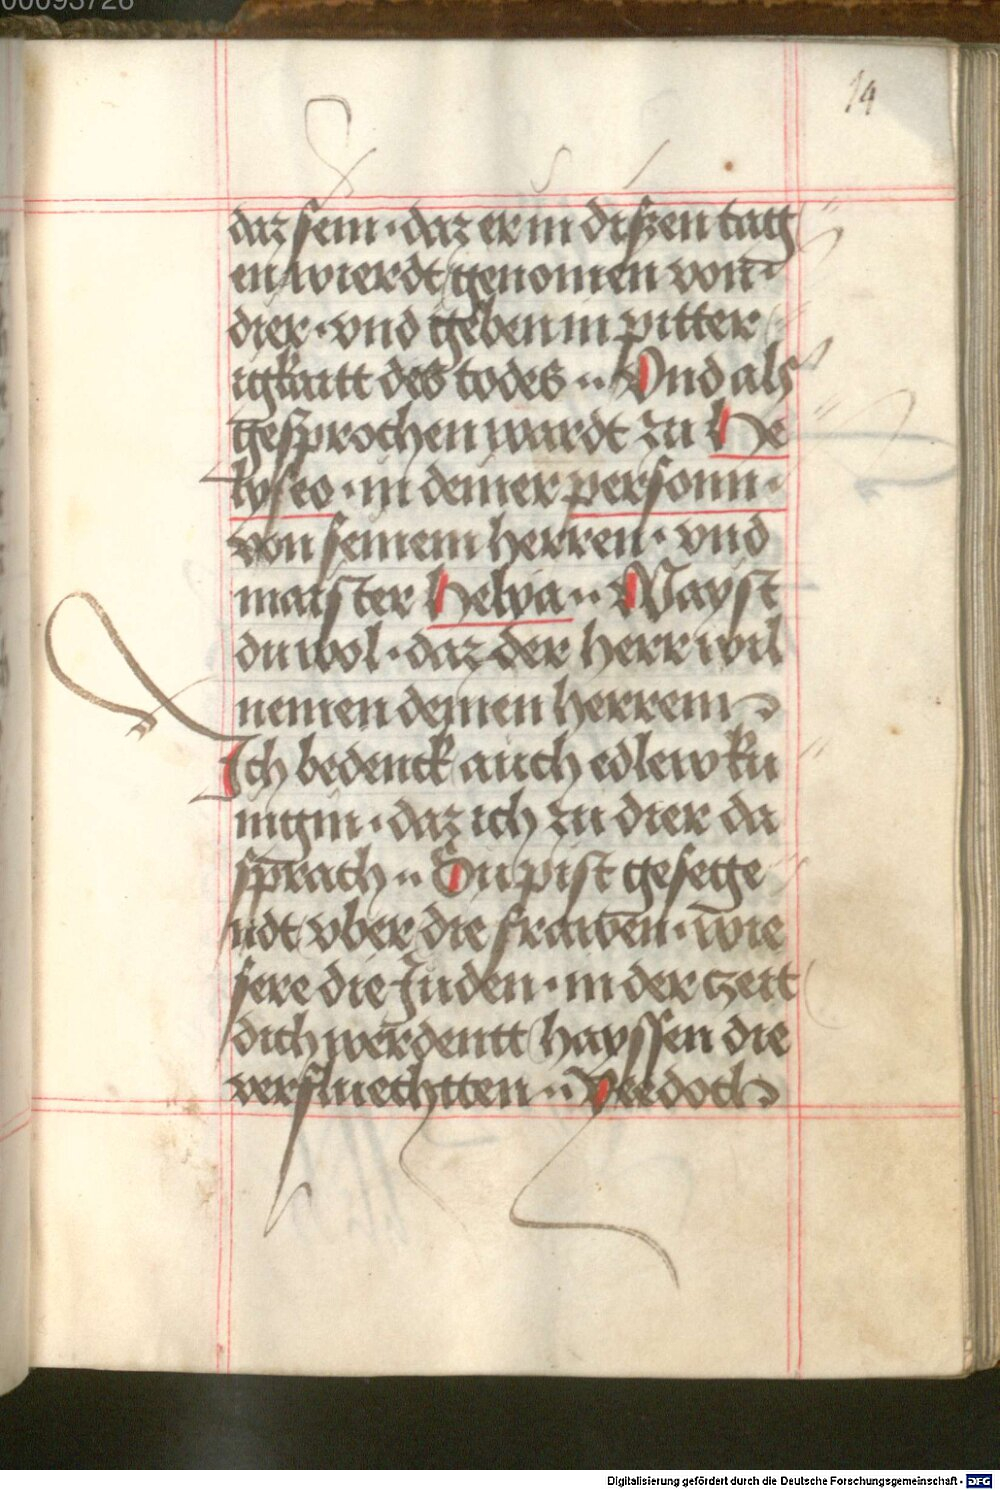 00093726
14
daz sein · daz er in diszen tag
en wierdt genomen von
dier · vnd geben in pitter
igkaitt des todes ·· Vnd als
gesprochen wardt zu He
lyseo · in deiner personn ·
von seinem herren · vnd
maister Helya ·· Wayst
du wol · daz der herr wil
nemen deinen herrenn
Ich bedenck auch edlew ku
nigin · daz ich zu dier da
sprach ·· Du pist gesege
ndt vber die frawen · wie
sere die Juden · in der zeitt
dich werdentt hayssen die
verfluechtten ·· Yedoch
Digitalisierung gefördert durch die Deutsche Forschungsgemeinschaft - DFG